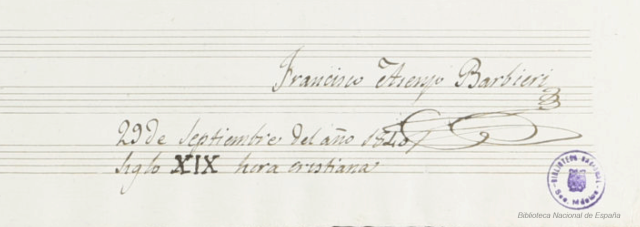 Francisco Asenjo Barbieri
29 de Septiembre del año 1840
Siglo XIX hera cristiana
BIBLIOTECA NACIONAL
Biblioteca Nacional de España